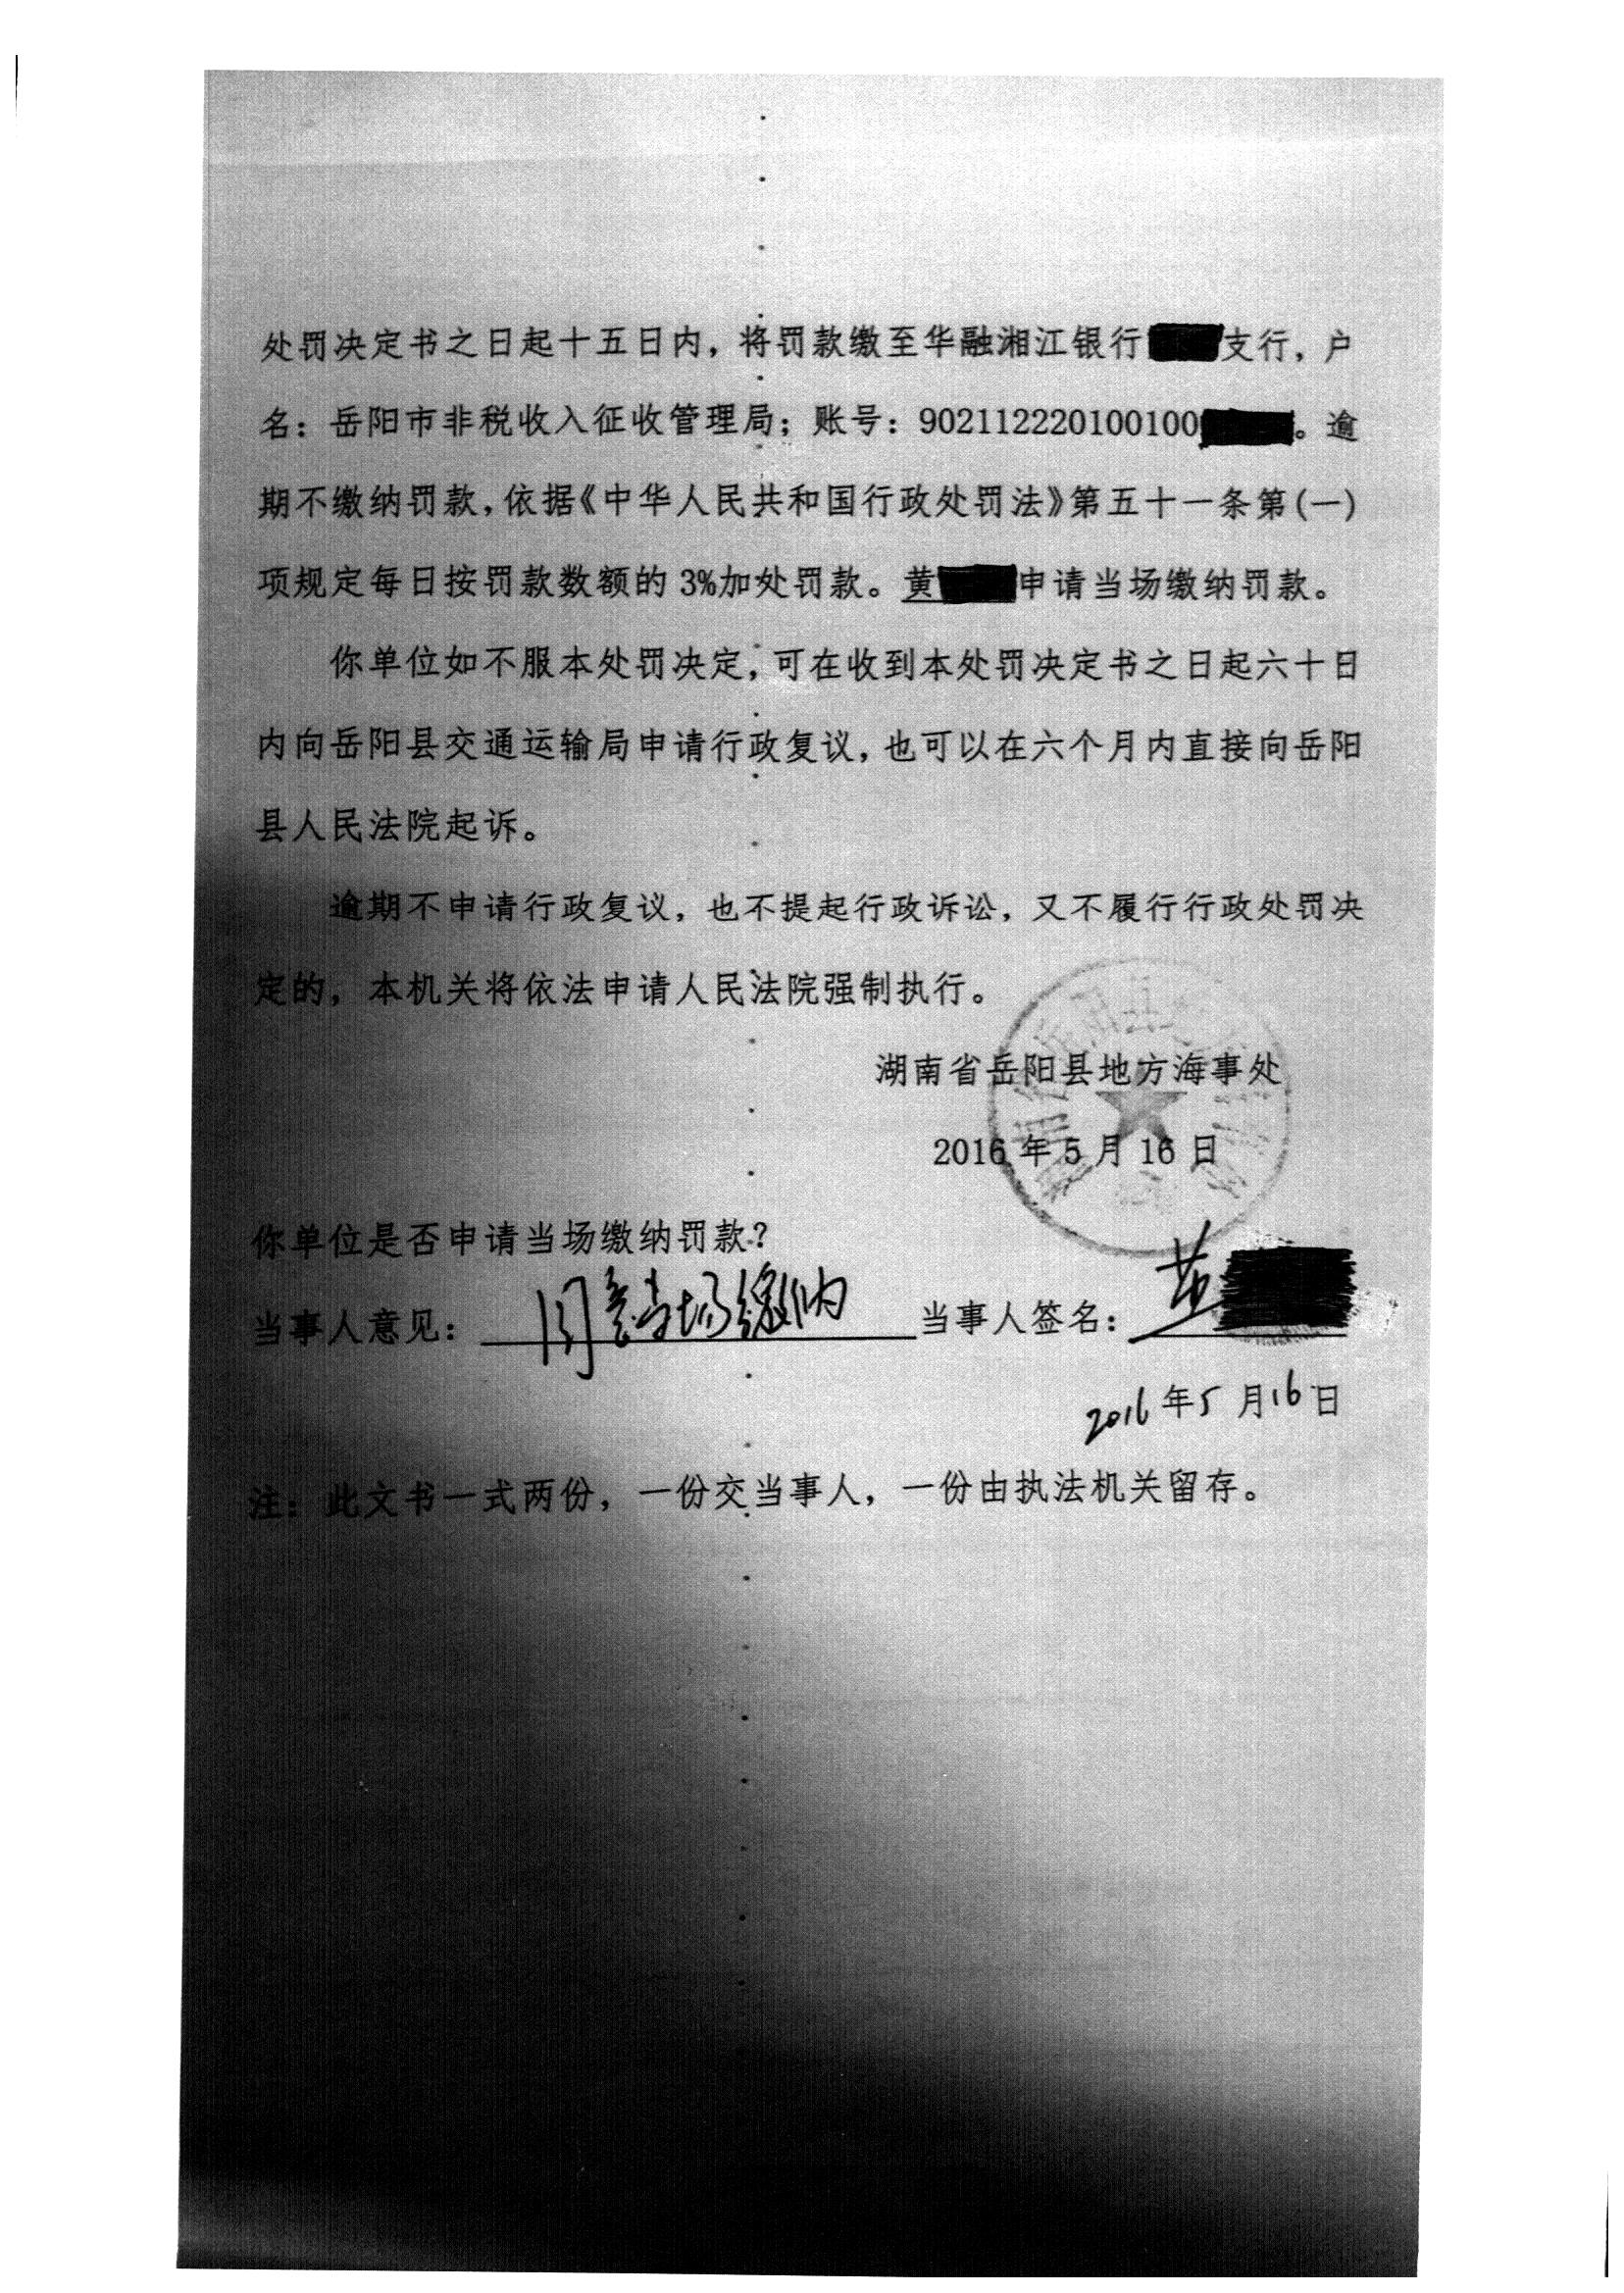 处罚决定书之日起十五日内，将罚款缴至华融湘江银行支行，户
名：岳阳市非税收入征收管理局；账号：902112220100100。逾
期不缴纳罚款，依据《中华人民共和国行政处罚法》第五十一条第(一)
项规定每日按罚款数额的 3%加处罚款。黄申请当场缴纳罚款。
你单位如不服本处罚决定，可在收到本处罚决定书之日起六十日
内向岳阳县交通运输局申请行政复议，也可以在六个月内直接向岳阳
县人民法院起诉。
逾期不申请行政复议，也不提起行政诉讼，又不履行行政处罚决
定的，本机关将依法申请人民法院强制执行。
湖南省岳阳县地方海事处
2016 年 5 月 16 日
你单位是否申请当场缴纳罚款？
当事人意见： 同意当场缴纳 当事人签名： 黄
2016 年 5 月 16 日
注：此文书一式两份，一份交当事人，一份由执法机关留存。